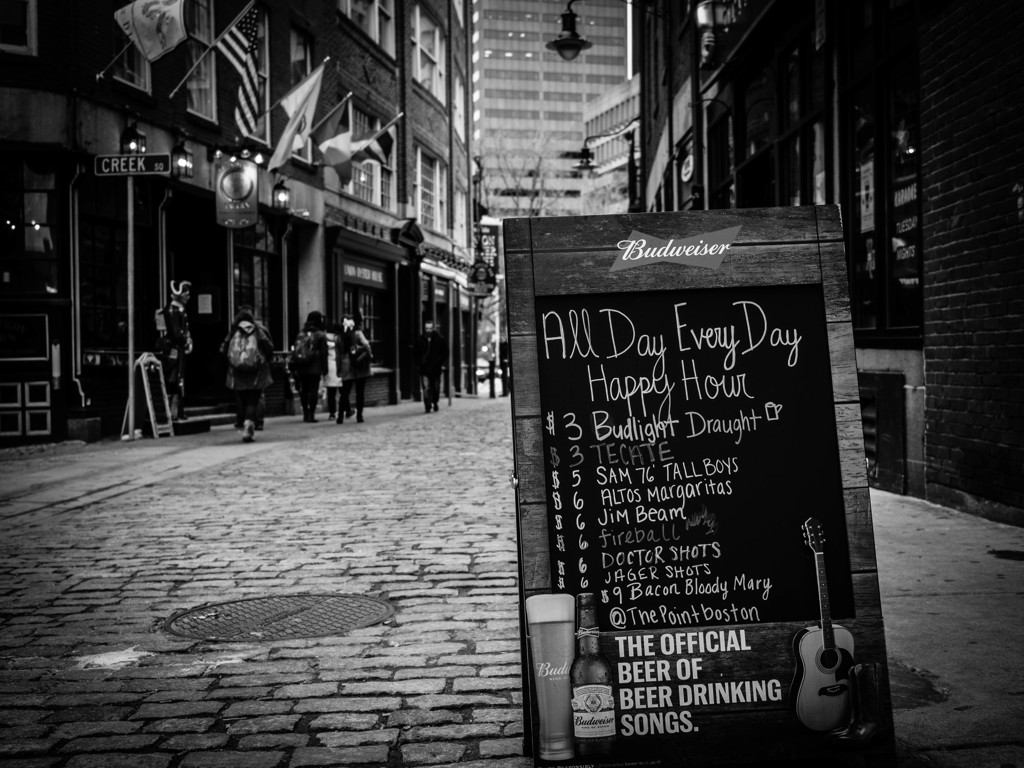 CREEK SQ
UNION OYSTER HOUSE
KARAOKE
TUESDAY
NIGHTS
Budweiser
All Day Every Day
Happy Hour
$3 Budlight Draught
$3 TECATE
$5 SAM 76 TALL BOYS
$6 ALTOS Margaritas
$6 Jim Beam
$6 fireball
$6 DOCTOR SHOTS
$6 JAGER SHOTS
$9 Bacon Bloody Mary
@ThePointboston
THE OFFICIAL
BEER OF
BEER DRINKING
SONGS.
Budweiser